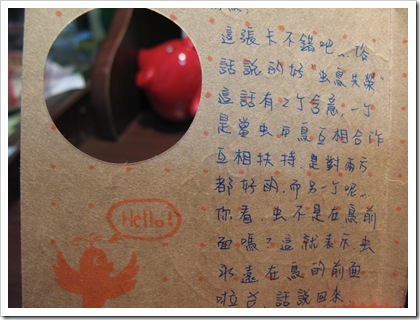 這張卡不錯吧、俗
話說的好"虫鳥共榮"
這話有2个含意,一个
是當虫、鳥互相合作
互相扶持,是對兩方
都好的,而另一个呢..
你看,虫不是在鳥前
面嗎?這就表示虫
永遠在鳥的前面
啦,話說回來
Hello!